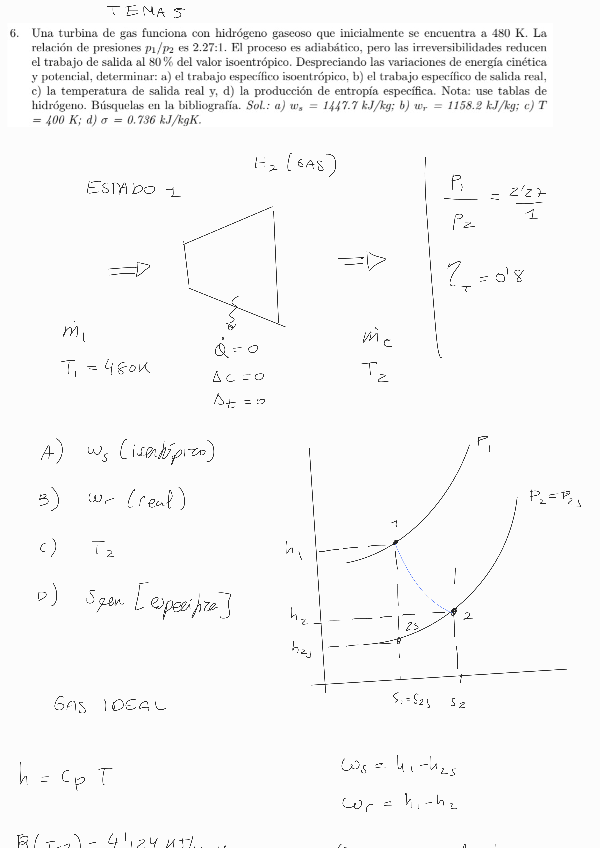 TEMA 5
6. Una turbina de gas funciona con hidrógeno gaseoso que inicialmente se encuentra a 480 K. La
relación de presiones p1/p2 es 2.27:1. El proceso es adiabático, pero las irreversibilidades reducen
el trabajo de salida al 80 % del valor isoentrópico. Despreciando las variaciones de energía cinética
y potencial, determinar: a) el trabajo específico isoentrópico, b) el trabajo específico de salida real,
c) la temperatura de salida real y, d) la producción de entropía específica. Nota: use tablas de
hidrógeno. Búsquelas en la bibliografía. Sol.: a) ws = 1447.7 kJ/kg; b) wr = 1158.2 kJ/kg; c) T
= 400 K; d) σ = 0.736 kJ/kgK.
H2 (GAS)
ESTADO 1
P1/P2 = 2'27/1
ηT = 0'8
ṁ1
T1 = 480K
Q̇ = 0
ΔC = 0
Δt = 0
T2
A) ws (isentrópico)
B) wr (real)
C) T2
D) sgen [específica]
P1
P2 = P2s
1
h1
h2
2
2s
h2s
s1 = s2s
s2
GAS IDEAL
h = Cp T
ws = h1 - h2s
wr = h1 - h2